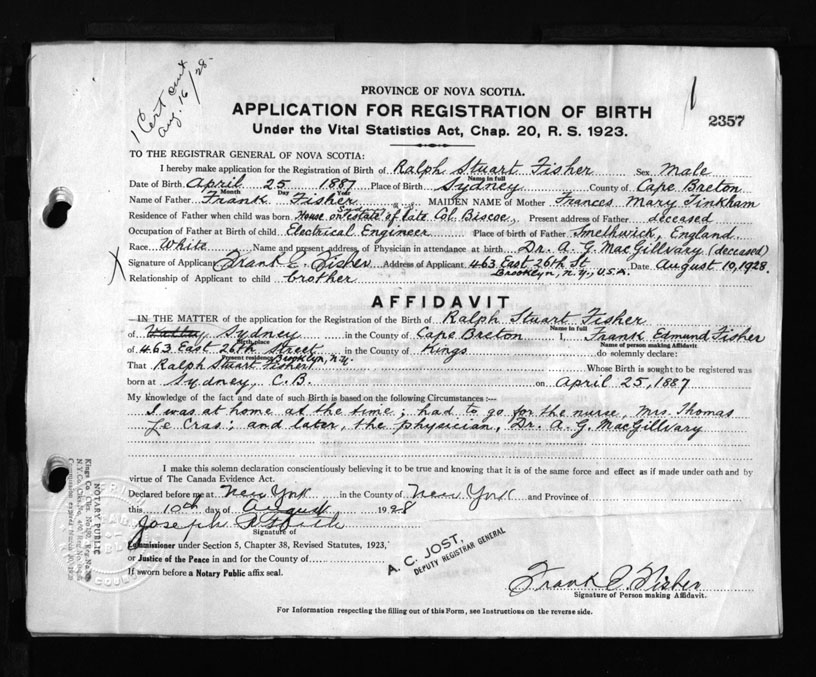 1 Cert out
Aug. 16/28
PROVINCE OF NOVA SCOTIA.
APPLICATION FOR REGISTRATION OF BIRTH
2357
Under the Vital Statistics Act, Chap. 20, R. S. 1923.
TO THE REGISTRAR GENERAL OF NOVA SCOTIA:
I hereby make application for the Registration of Birth of Ralph Stuart Fisher Sex Male
Name in full
Date of Birth April 25 1887 Place of Birth Sydney County of Cape Breton
Month Day Year
Name of Father Frank Fisher MAIDEN NAME of Mother Frances Mary Tinkham
Sydney
Residence of Father when child was born House on estate of late Col. Biscoe, Present address of Father deceased
Occupation of Father at Birth of child Electrical Engineer Place of birth of Father Smethwick, England
Race White Name and present address of Physician in attendance at birth Dr. A. G. MacGillvary (deceased)
Signature of Applicant Frank E. Fisher Address of Applicant 463 East 26th St Date August 10, 1928
Brooklyn, N.Y., U.S.A.
Relationship of Applicant to child brother
AFFIDAVIT
IN THE MATTER of the application for the Registration of the Birth of Ralph Stuart Fisher
Name in full
of Sydney in the County of Cape Breton I, Frank Edmund Fisher
Birth place
Name of person making Affidavit
of 463 East 26th Street in the County of Kings do solemnly declare:
Present residence Brooklyn, N.Y.
That Ralph Stuart Fisher Whose Birth is sought to be registered was
born at Sydney, C.B. on April 25, 1887
My knowledge of the fact and date of such Birth is based on the following Circumstances:—
I was at home at the time; had to go for the nurse, Mrs. Thomas
Le Cras; and later, the physician, Dr. A. G. MacGillvary
I make this solemn declaration conscientiously believing it to be true and knowing that it is of the same force and effect as if made under oath and by
virtue of The Canada Evidence Act.
Declared before me at New York in the County of New York and Province of
this 10th day of August 1928
Joseph
Signature of
Commissioner under Section 5, Chapter 38, Revised Statutes, 1923,
or Justice of the Peace in and for the County of
If sworn before a Notary Public affix seal.
A. C. JOST.
DEPUTY REGISTRAR GENERAL
Frank E. Fisher
Signature of Person making Affidavit.
For Information respecting the filling out of this Form, see Instructions on the reverse side.
NOTARY PUBLIC